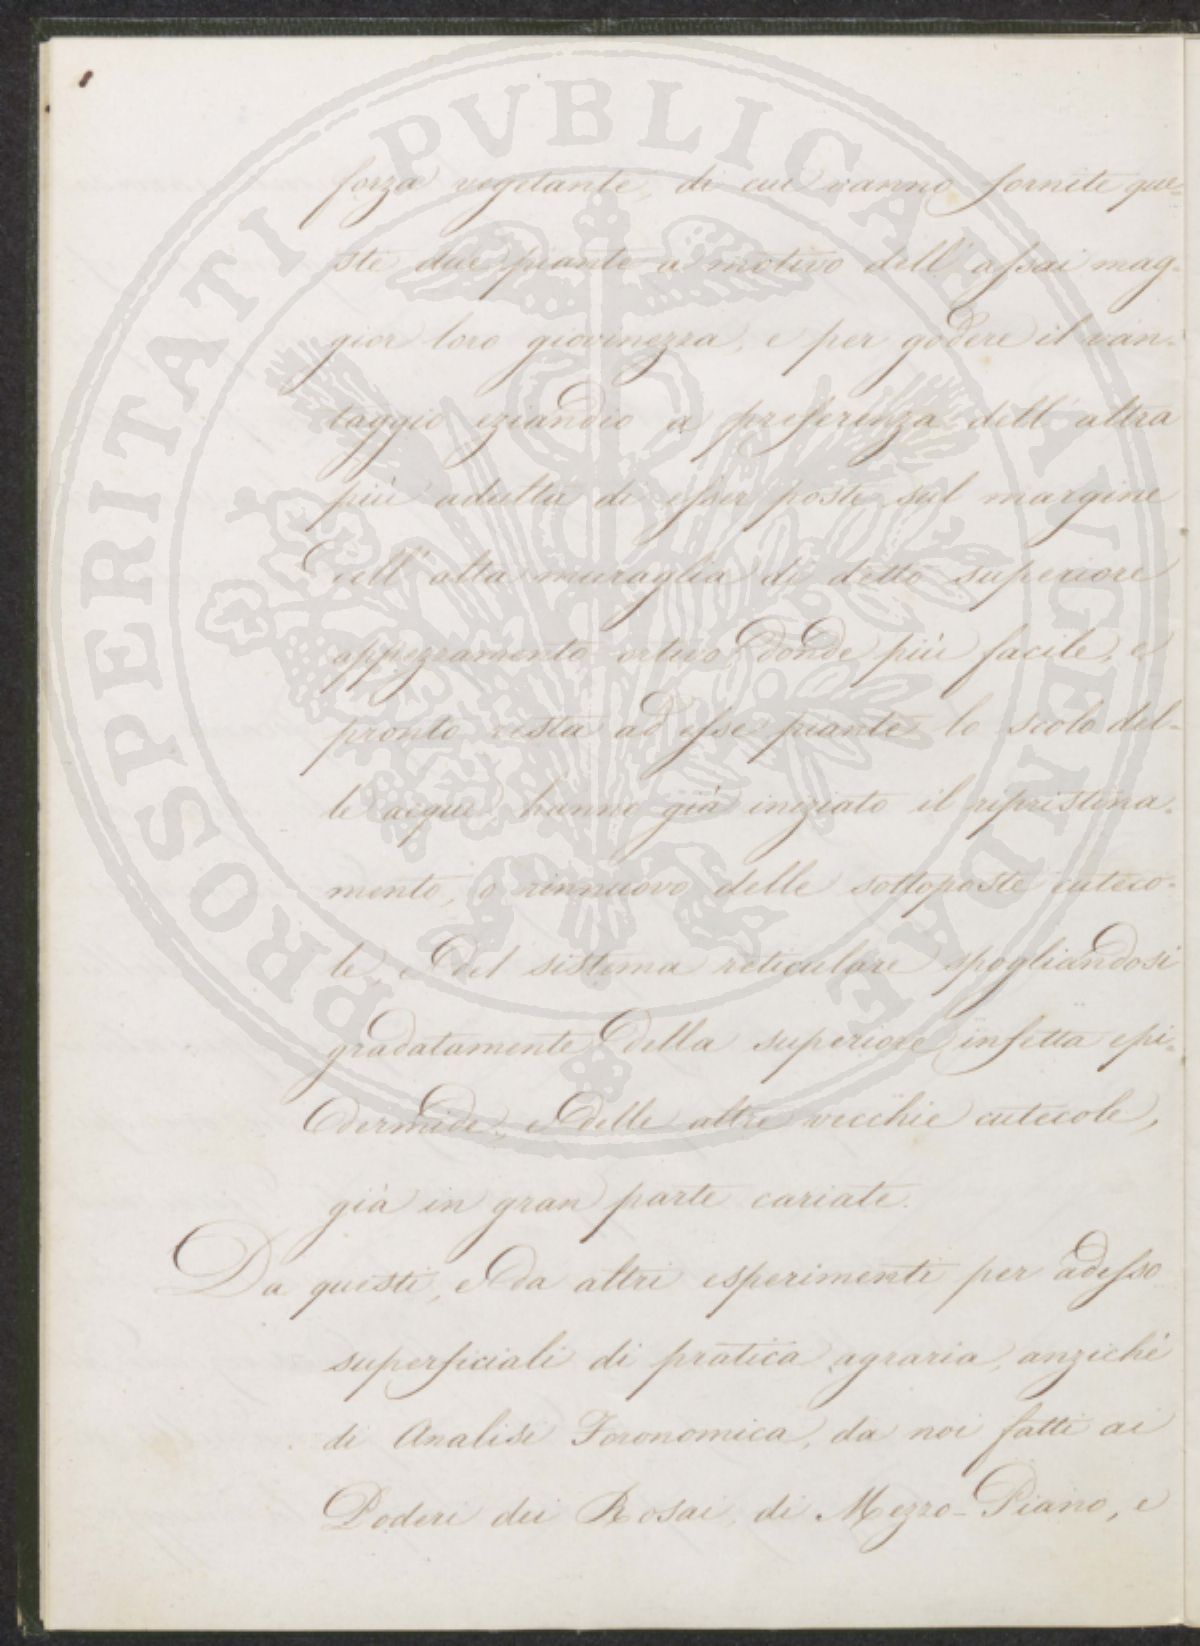 forza vegetante, di cui vanno fornite que=
ste due piante a motivo dell' assai mag=
gior loro giovinezza, e per godere il van=
taggio eziandio a preferenza dell' altra
più adulta di esser poste sul margine
dell' alta muraglia di detto superiore
appezzamento ortivo donde più facile, e
pronto resta ad esse piante lo scolo del-
le acque, hanno già iniziato il ripristina=
mento, o rinnuovo delle sottoposte cuteco-
le, e del sistema reticulare spogliandosi
gradatamente della superiore infetta epi=
dermide, e delle altre vecchie cutecole,
già in gran parte cariate.
Da questi, e da altri esperimenti per adesso
superficiali di pratica agraria, anziché
di Analisi Foronomica, da noi fatti ai
Poderi dei Rosai, di Mezzo-Piano, e
PROSPERITATI PVBLICAE AVGENDAE